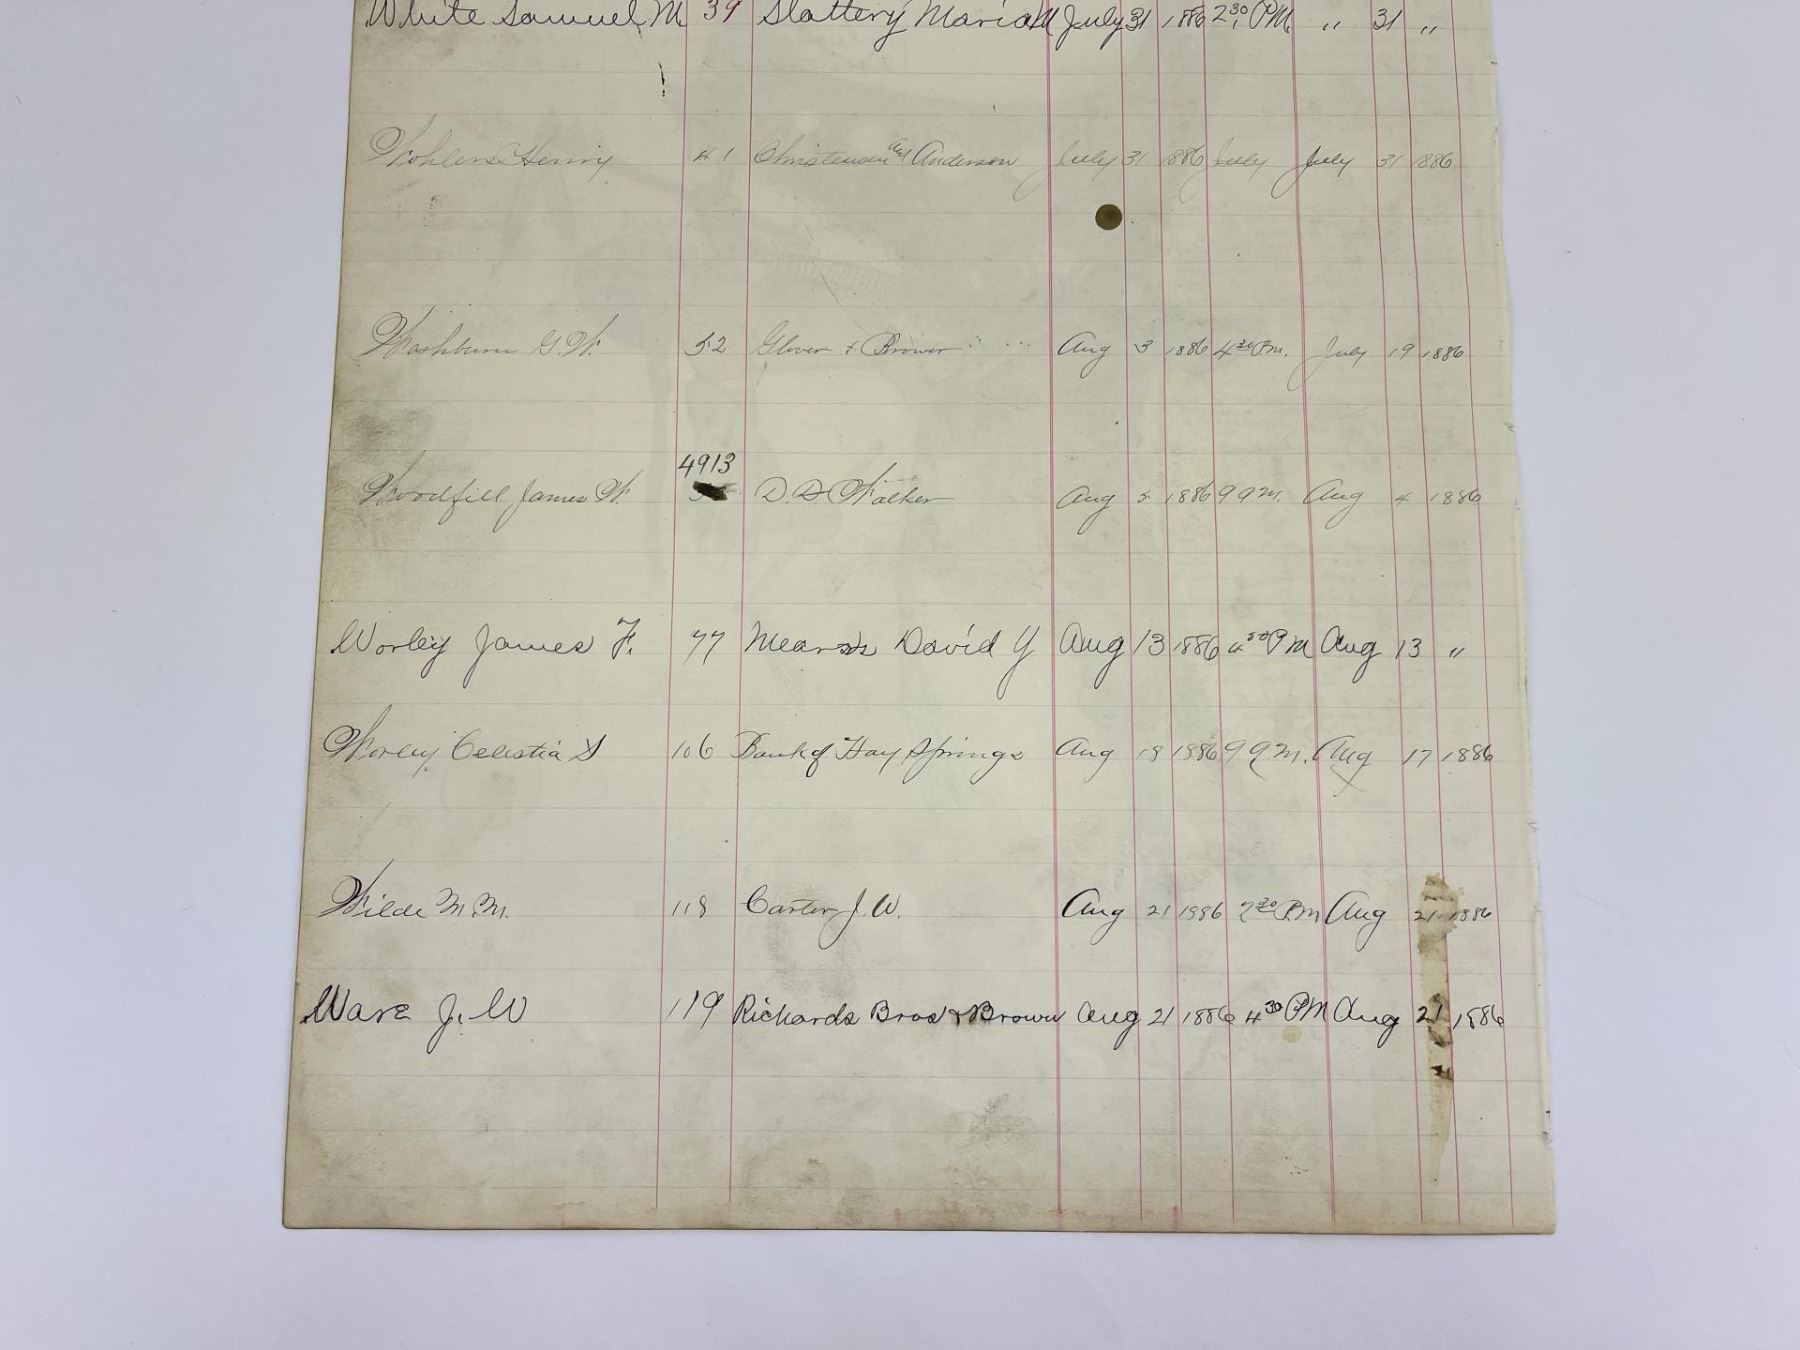 White Samuel M 39 Slattery Maria M July 31 1886 2 30 PM " 31 "
Wohlers Henry 41 Christensen and Anderson July 31 1886 July July 31 1886
Washburn G. W. 52 Glover & Brower Aug 3 1886 4 30 P.m. July 19 1886
4913
Woodfill James W. D. D. Walker Aug 5 1886 9 a m. Aug 4 1886
Worley James F. 77 Mears David Y Aug 13 1886 4 30 P M Aug 13 "
Worley Celestia S 106 Bank of Hay Springs Aug 18 1886 9 a m. Aug 17 1886
Wilde M. M. 118 Carter J. W. Aug 21 1886 2 30 P.m Aug 21 1886
Ware J. W 119 Richards Bros & Brown Aug 21 1886 4 30 PM Aug 21 1886